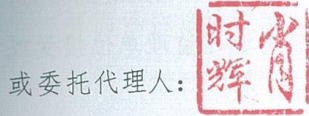 或委托代理人：
肖时辉